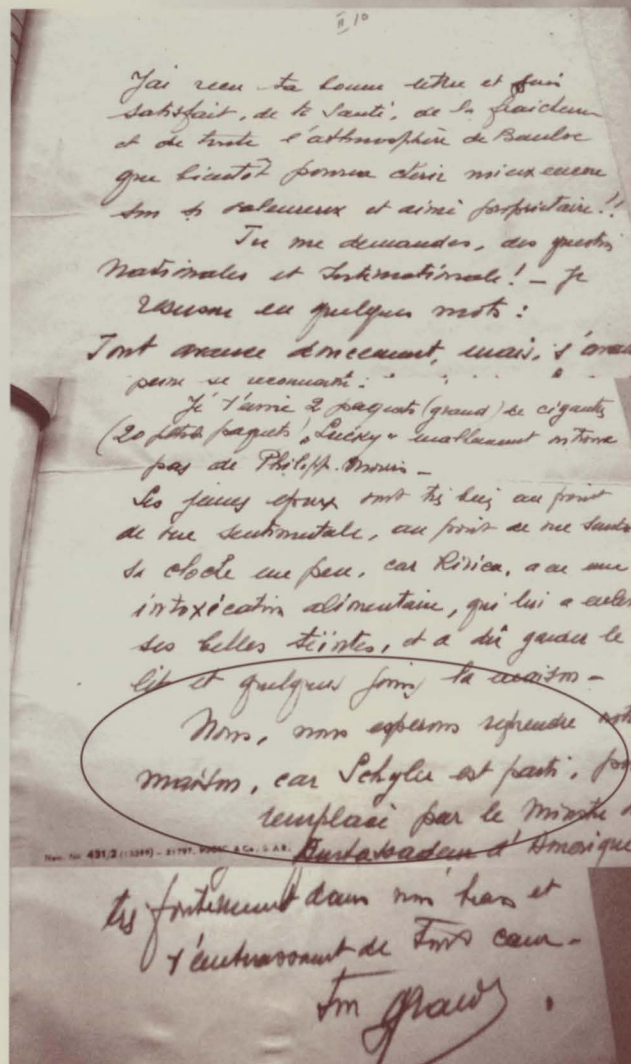 II 10
J'ai recu ta bonne lettre et suis
satisfait, de ta Santé, de la fraicheur
et de toute l'athmosphère de
que bientôt pourra mieux encore
son si valeureux et aimé propriétaire!!
Tu me demandes, des questions
Nationales et Internationale! — Je
résume en quelques mots:
Tout avance doucement, mais,
peine se reconnait:
Je t'envie 2 paquets (grand) de
(20 petits paquets) "Lucky" on trouve
pas de Philipp-Morris —
Les jeunes époux sont très bien au point
de vue sentimentale, au point de vue
ça cloche un peu, car a eu une
intoxécation alimentaire, qui lui a
ses belles teintes, et a dû garder le
lit et quelques jours la maison —
Nous, nous esperons reprendre
maison, car Schyler est parti,
remplacé par le Ministre
Ambassadeur d'Amerique
431/2
très fortement dans nos bras et
t'embrassent de tout cœur —
Ton